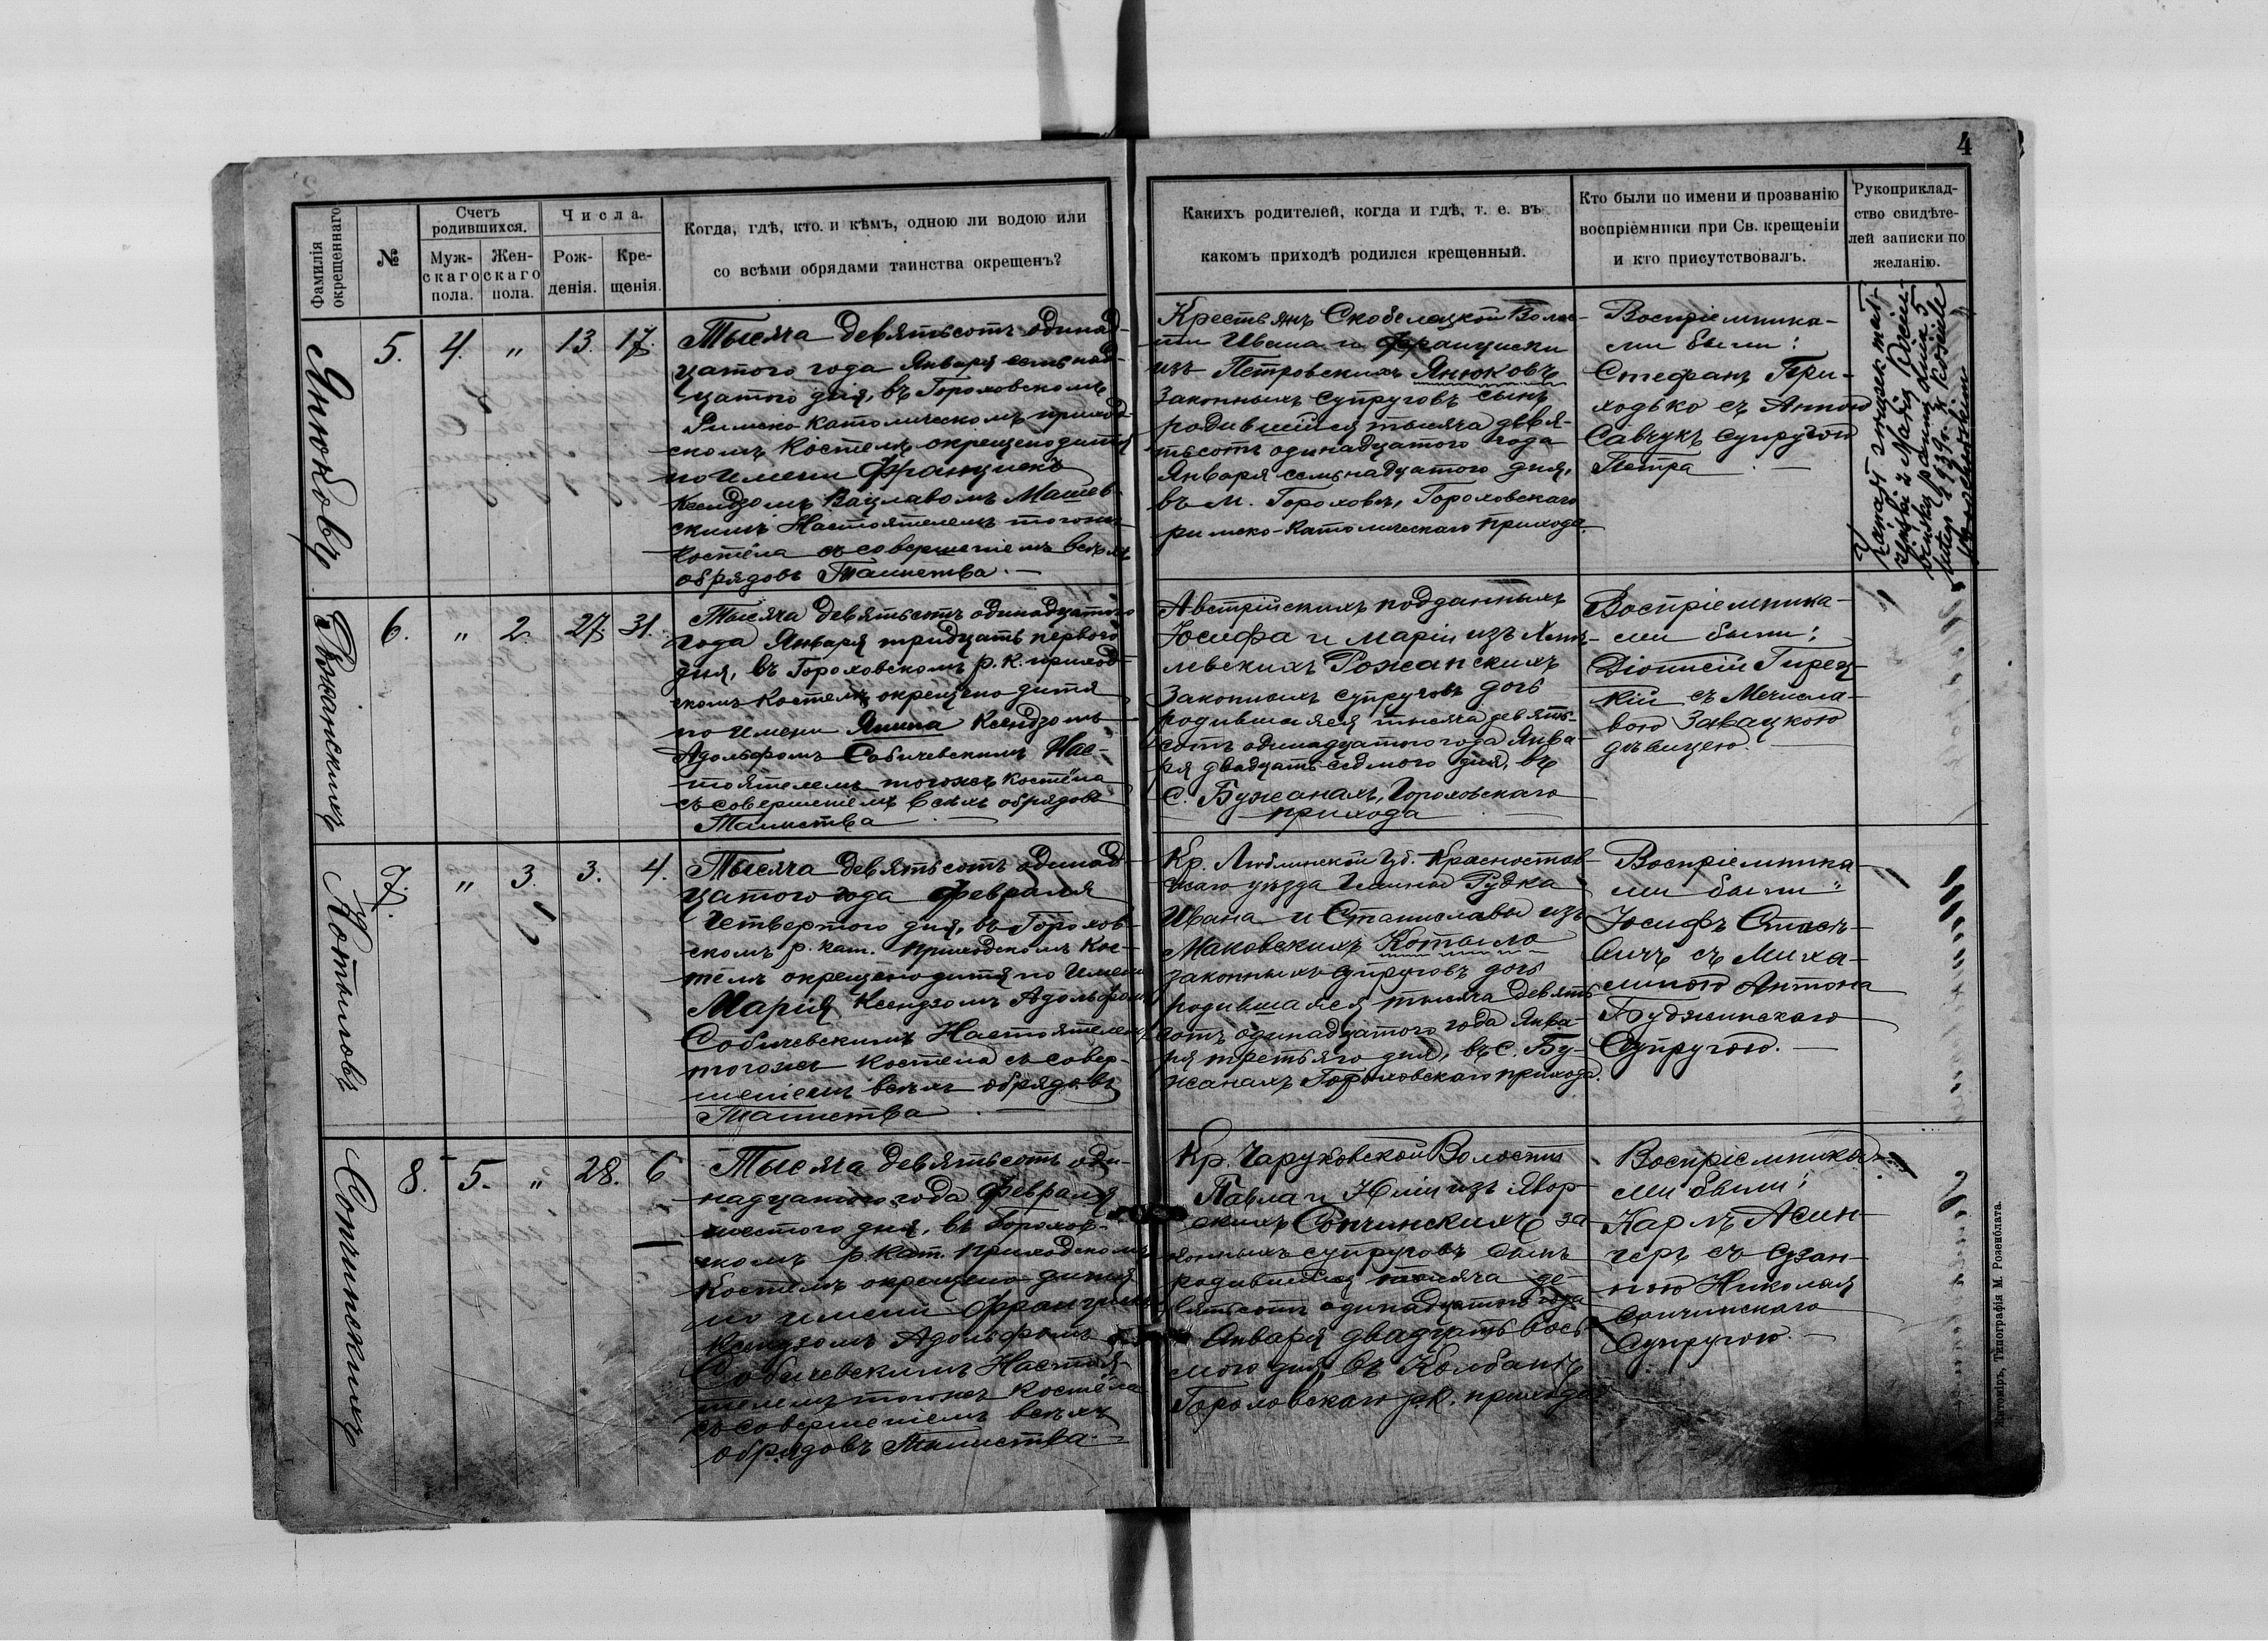 4
Фамилія окрещеннаго
№
Счетъ родившихся.
Муж-
скаго
пола.
Жен-
скаго
пола.
Числа.
Рож-
денія.
Кре-
щенія.
Когда, гдѣ, кто и кѣмъ, одною ли водою или
со всѣми обрядами таинства окрещенъ?
Какихъ родителей, когда и гдѣ, т. е. въ
какомъ приходѣ родился крещенный.
Кто были по имени и прозванію
воспріемники при Св. крещеніи
и кто присутствовалъ.
Рукоприклад-
ство свидѣте-
лей записки по
желанію.
Янюковъ
5. 4. " 13. 17.
Тысяча девятьсотъ одинад-
цатого года Января семьнад-
цатого дня, въ Гороховскомъ
Римско-католическомъ приход-
скомъ костелѣ окрещено дитя
по имени Францискъ
Ксендзомъ Вацлавомъ
скимъ Настоятелемъ тогоже
костёла съ совершеніемъ всѣхъ
обрядовъ Таинства. —
Крестьянъ Скобелецкой Волос-
ти Ивана и Франциски
изъ Петровскихъ Янюковъ
законныхъ супруговъ сынъ
родившійся тысяча девя-
тьсотъ одинадцатого года
Января семьнадцатого дня,
въ м. Гороховѣ, Гороховскаго
римско-католическаго прихода.
Воспріемника-
ми были:
Стефанъ При-
ходько съ Анною
Савчукъ супругою
Петра —
Рожанскихъ
6. " 2. 27. 31.
Тысяча девятьсотъ одинадцатого
года Января тридцать первого
дня, въ Гороховскомъ р. к. приход-
скомъ костелѣ окрещено дитя
по имени Янина Ксендзомъ
Адольфомъ Собичевскимъ Нас-
тоятелемъ тогожъ костёла
съ совершеніемъ всѣхъ обрядовъ
Таинства —
Австрійскихъ подданныхъ
Юсифа и Маріи изъ
левскихъ Рожанскихъ
законныхъ супруговъ дочь
родившаяся тысяча девять-
сотъ одинадцатого года Янва-
ря двадцать седьмого дня, въ
с. Бужанахъ, Гороховскаго
прихода —
Воспріемника-
ми были:
Діонисій Гирец-
кій съ Мечисла-
вою Завацкою
дѣвицею. —
Котыловъ
7. " 3. 3. 4.
Тысяча девятьсотъ одинад-
цатого года Февраля
четвертого дня, въ Горохов-
скомъ р. кат. приходскомъ кос-
телѣ окрещено дитя по имени
Марія Ксендзомъ Адольфомъ
Собичевскимъ Настоятелемъ
тогожъ костела съ совер-
шеніемъ всѣхъ обрядовъ
Таинства —
Кр. Люблинской Губ. Красностав-
скаго уѣзда Гмины Рудка
Ивана и Станиславы изъ
Маковскихъ Котыло
законныхъ супруговъ дочь
родившаяся тысяча девять
сотъ одинадцатого года Янва-
ря третьяго дня, въ с. Бу-
жанахъ Гороховскаго прихода.
Воспріемника
ми были:
Юсифъ
вичъ съ Миха-
линою Антона
Буджинскаго
Супругою. —
Сончинскихъ
8. 5. " 28. 6
Тысяча девятьсотъ оди-
надцатого года Февраля
шестого дня, въ Горохов-
скомъ р. кат. приходскомъ
Костелѣ окрещено дитя
по имени
Ксендзомъ Адольфомъ
Собичевскимъ Настоя-
телемъ тогожъ костёла
съ совершеніемъ всѣхъ
обрядовъ Таинства —
Кр. Чаруковской Волости
Павла и Юліи изъ Явор-
скихъ Сончинскихъ за-
конныхъ супруговъ сынъ
родившійся тысяча де-
вятьсотъ одинадцатого года
Января двадцать вось-
мого дня, въ Колбанѣ
Гороховскаго р.к. прихода
Воспріемника-
ми были:
Карлъ Асин-
геръ съ Сузан-
ною Николая
Сончинскаго
Супругою. —
Житоміръ, Типографія М. Розенблата.